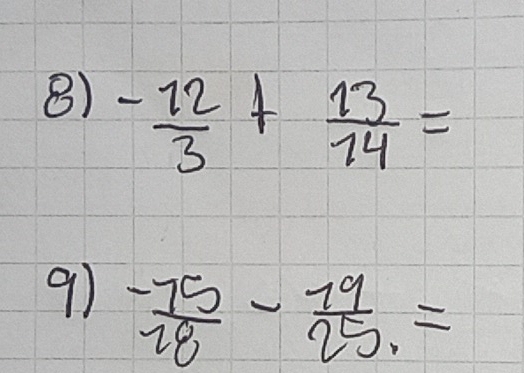 8) -12/3 + 13/14 =
9) -15/18 - 19/25. =